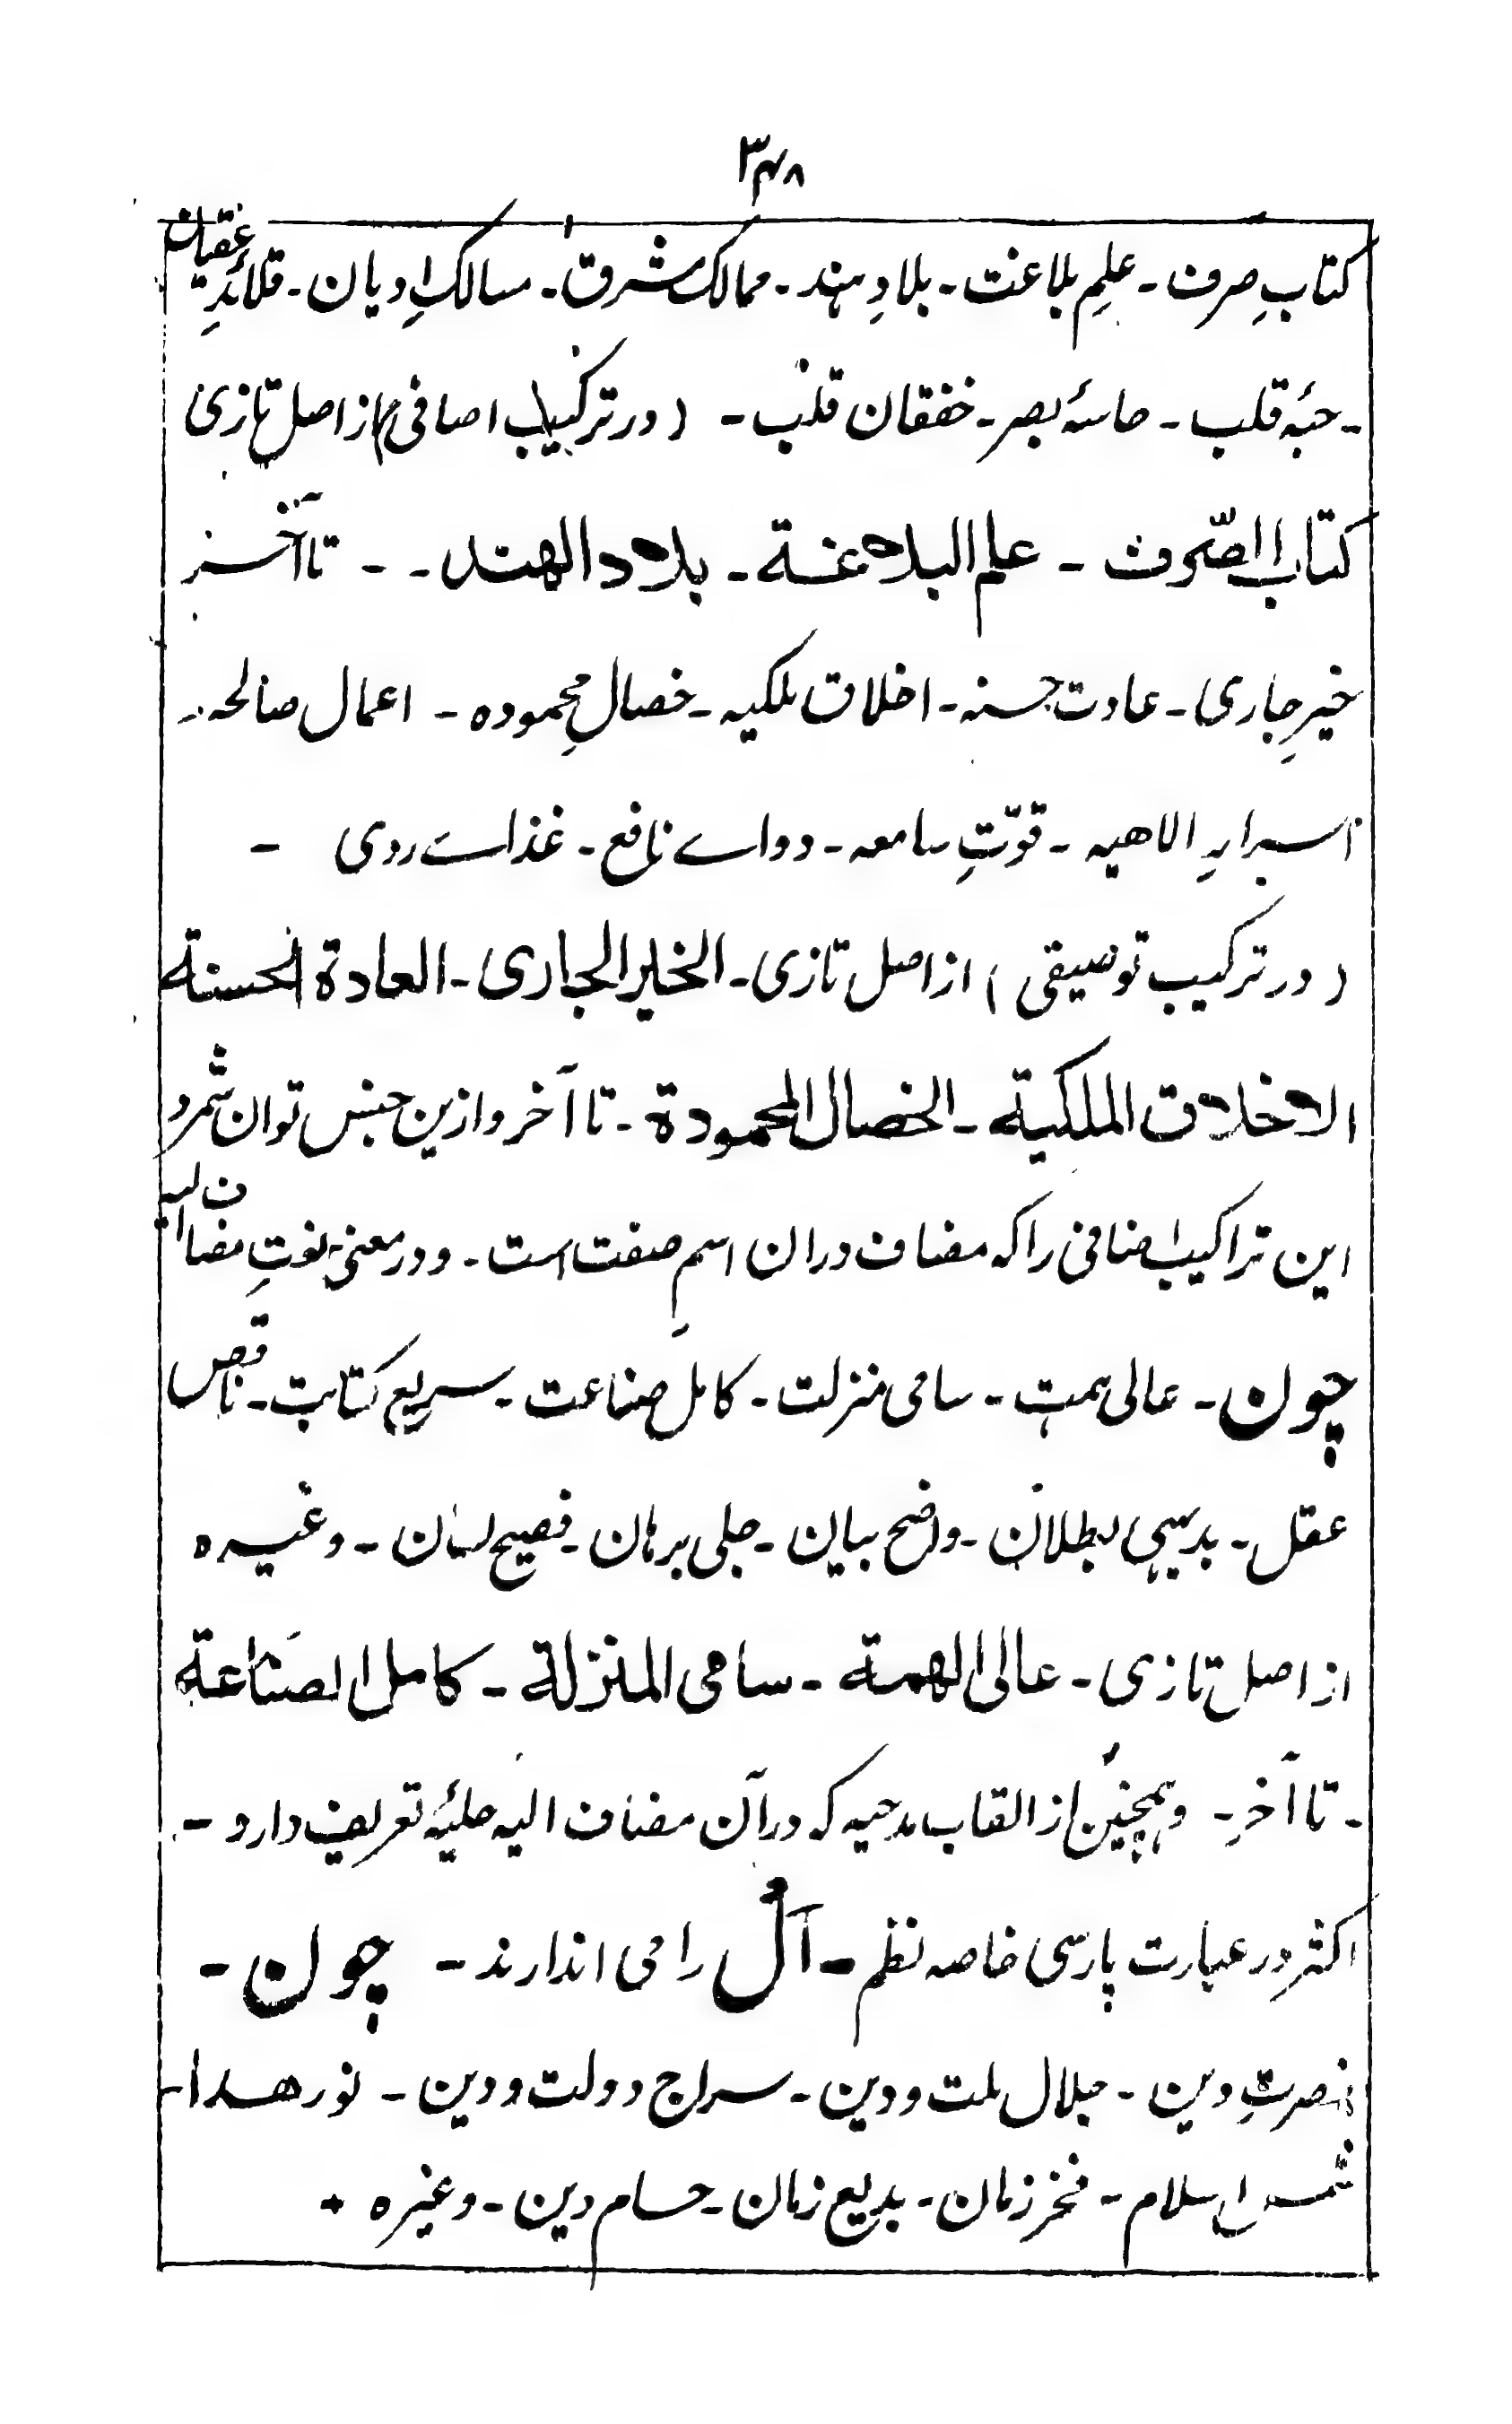 ۳۴۸
کتابِ صرف - علمِ بلاغت - بلادِ ہند - ممالک مشرق - مسالکِ ادیان - قلائدِ عقیان
- حبۂ قلب - حاسۂ بصر - خفقان قلب - (در ترکیب اضافی) از اصل تازی
کتاب الصّرف - علم البلاغة - بلاد الهند - - تا آخر
خیرِ جاری - عادت حسنه - اخلاق ملکیه - خصالِ محموده - اعمال صالحه -
اسرارِ الاهیه - قوّتِ سامعه - دواے نافع - غذاے ردی -
(در ترکیب توصیفی) از اصل تازی - الخیر الجاری - العادة الحسنة
الاخلاق الملکیة - الخصال المحمودة - تا آخر و ازین جنس توان شمرد
این تراکیب اضافی را که مضاف دران اسمِ صفت است - و در معنی نعتِ مضاف الیه
چون - عالی ہمت - سامی منزلت - کامل صناعت - سریع کتابت - ناقص
عقل - بدیہی بطلان - واضح بیان - جلی برہان - فصیح لسان - و غیره
از اصل تازی - عالی الهمة - سامی المنزلة - کامل الصناعة
- تا آخر - و ہمچنین از القاب مدحیه که در آن مضاف الیه حلیۂ تعریف دارد -
اکثر در عبارت پارسی خاصه نظم - اَلْ را می اندازند - چون -
نصرتِ دین - جلال ملت و دین - سراج دولت و دین - نور هدا -
شمس اسلام - فخر زمان - بدیع زمان - حسام دین - و غیره +